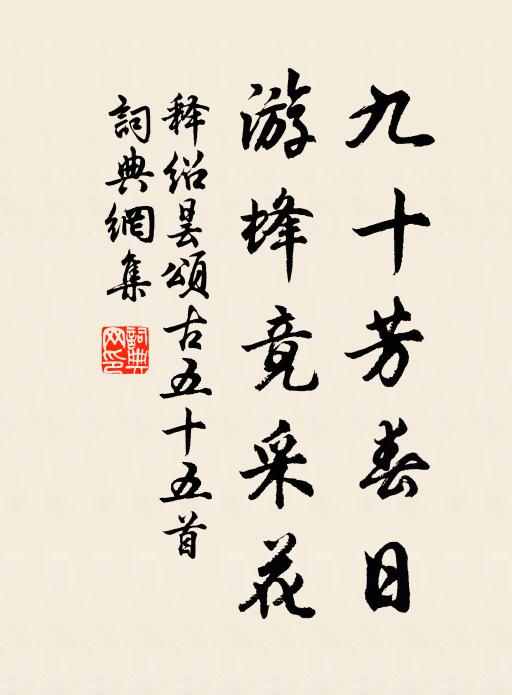 九十芳春日
游蜂竟采花
释绍昙颂古五十五首
詞典網集
詞典网印